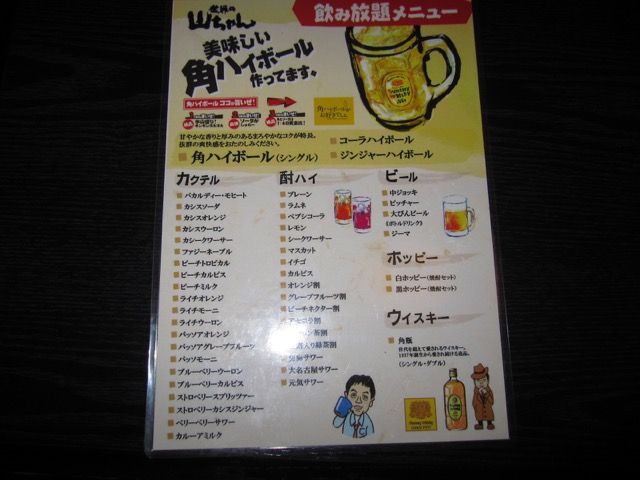 世界の
山ちゃん
飲み放題メニュー
美味しい
角ハイボール
作ってます。
角ハイボール ココが旨いぜ!
甘やかな香りと厚みのあるまろやかなコクが特長。
抜群の爽快感をおたのしみください。
角ハイボール(シングル)
コーラハイボール
ジンジャーハイボール
カクテル
バカルディー・モヒート
カシスソーダ
カシスオレンジ
カシスウーロン
カシークヮーサー
ファジーネーブル
ピーチトロピカル
ピーチカルピス
ピーチミルク
ライチオレンジ
ライチモーニ
ライチウーロン
パッソアオレンジ
パッソアグレープフルーツ
パッソモーニ
ブルーベリーウーロン
ブルーベリーカルピス
ストロベリースプリッツァー
ストロベリーカシスジンジャー
ベリーベリーサワー
カルーアミルク
酎ハイ
プレーン
ラムネ
ペプシコーラ
レモン
シークヮーサー
マスカット
イチゴ
カルピス
オレンジ割
グレープフルーツ割
ピーチネクター割
アセロラ割
茶割
入り緑茶割
サワー
大名古屋サワー
元気サワー
ビール
中ジョッキ
ピッチャー
大びんビール
《ボトルドリンク》
ジーマ
ホッピー
白ホッピー(焼酎セット)
黒ホッピー(焼酎セット)
ウイスキー
角瓶
世代を超えて愛されるウイスキー。
1937年誕生から愛され続ける逸品。
(シングル・ダブル)